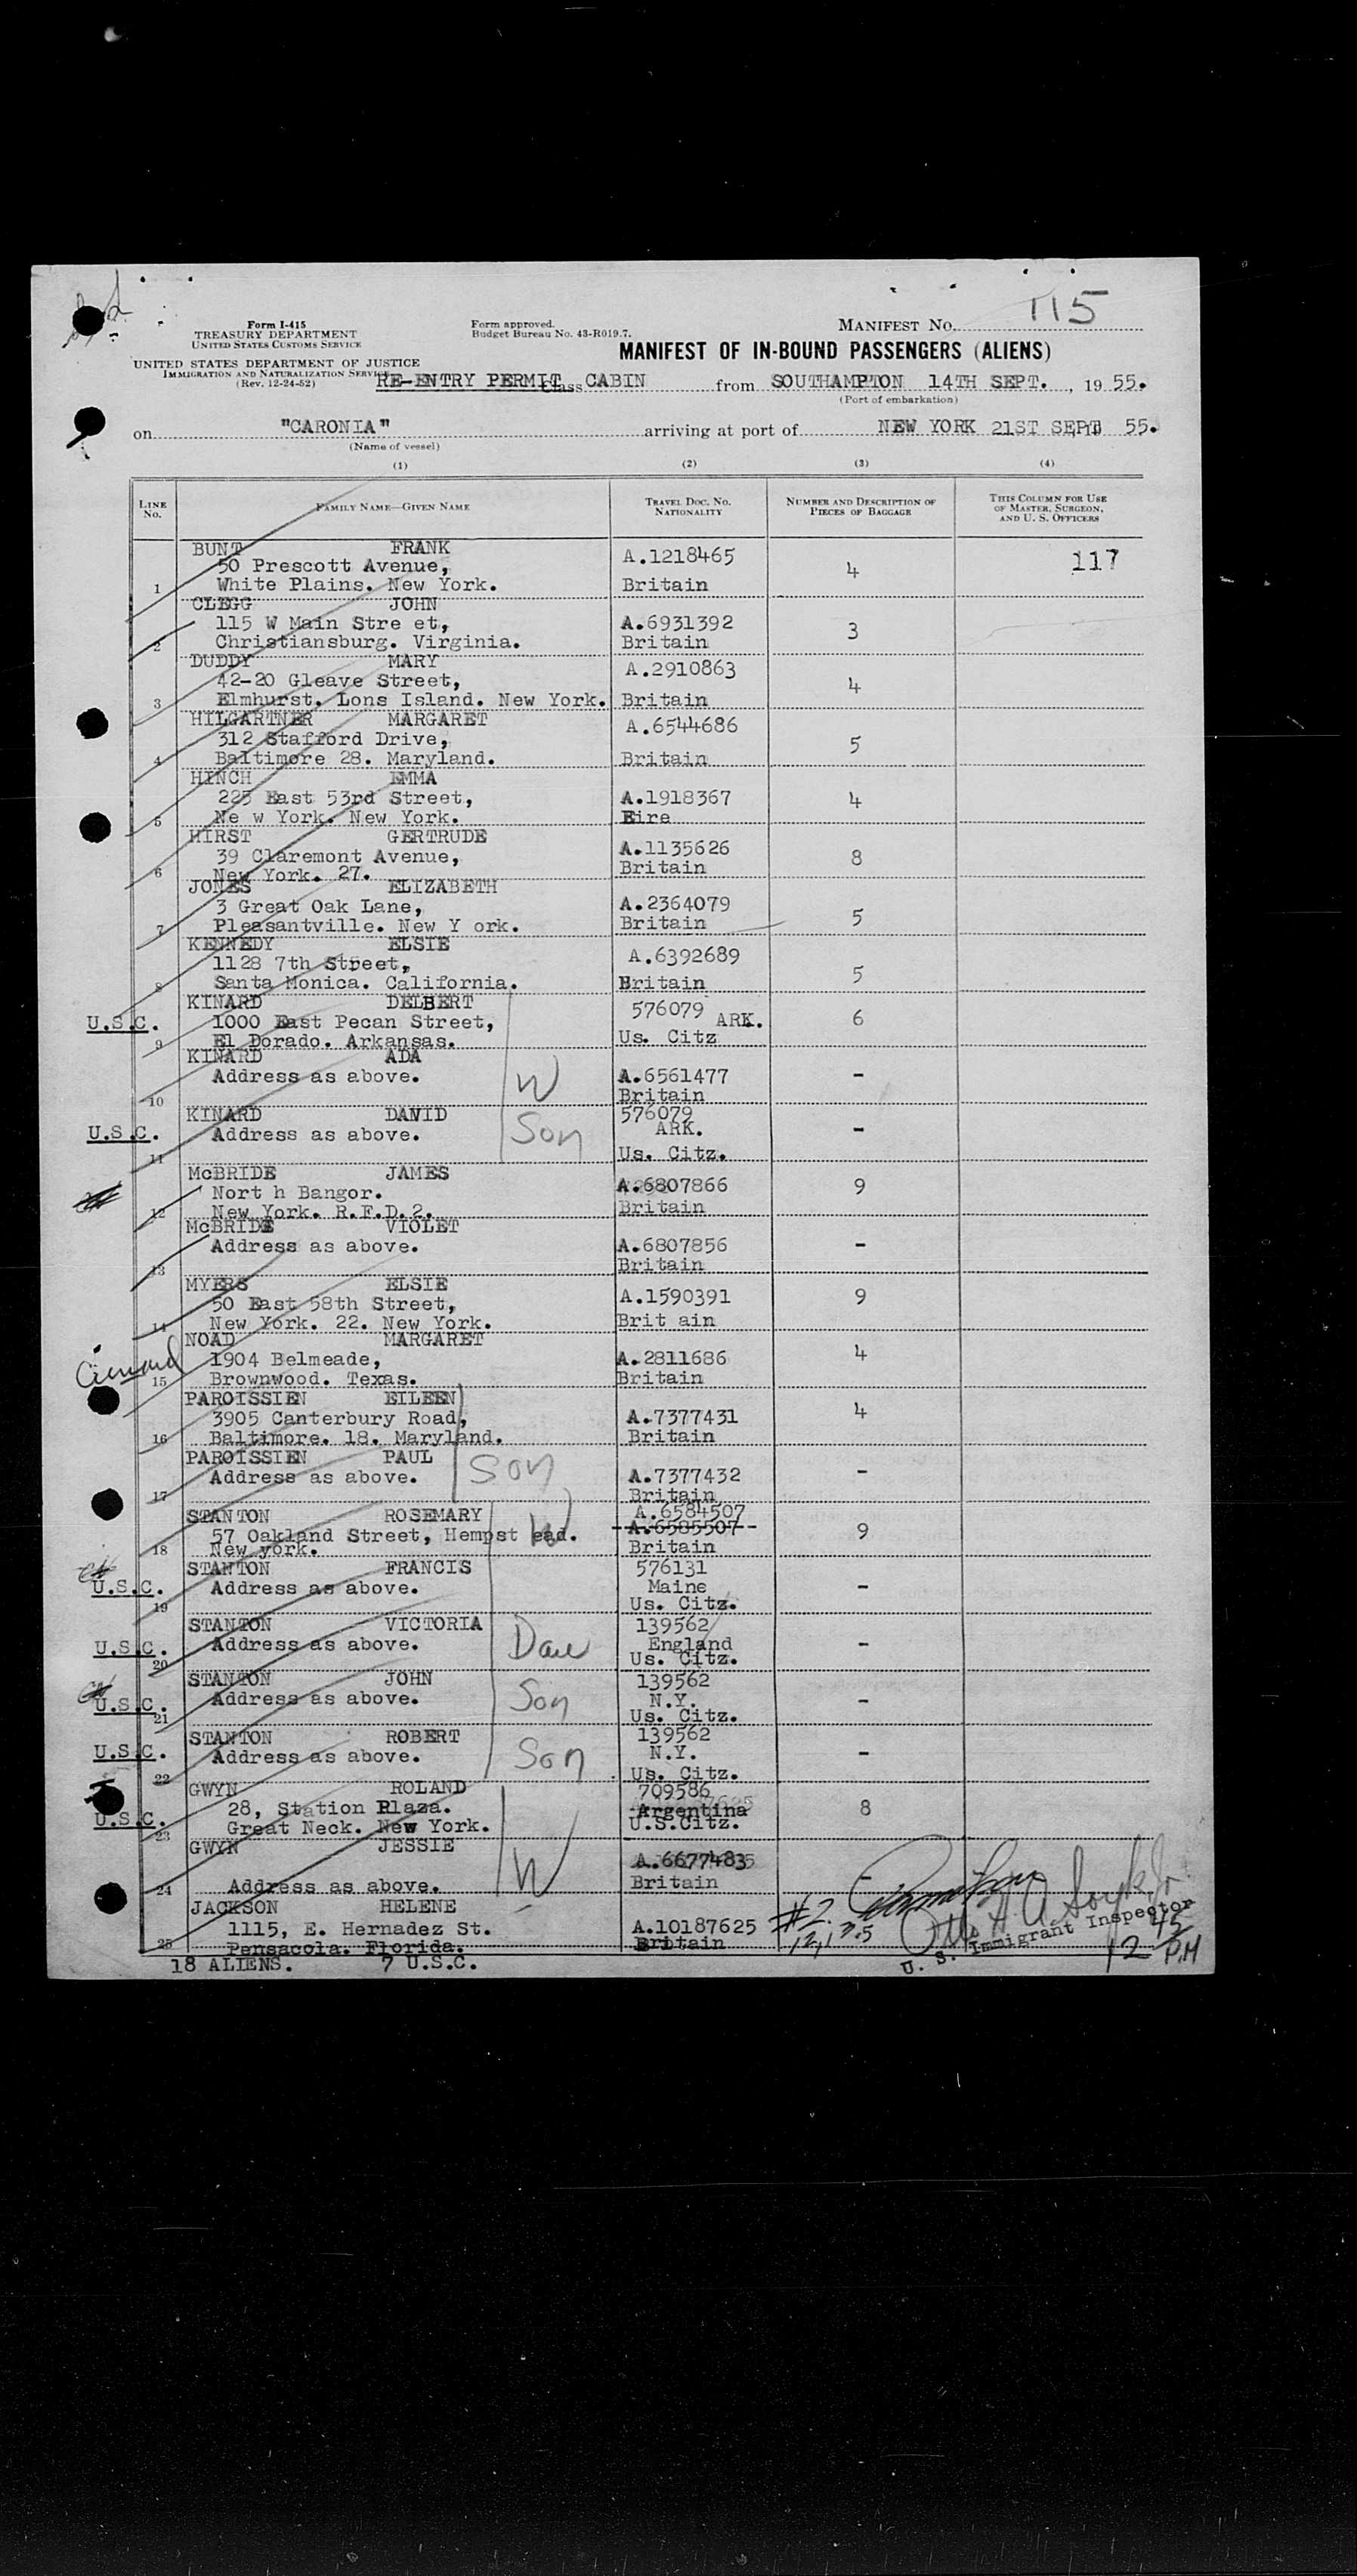 115
Form I-415
TREASURY DEPARTMENT
UNITED STATES CUSTOMS SERVICE
UNITED STATES DEPARTMENT OF JUSTICE
IMMIGRATION AND NATURALIZATION SERVICE
(Rev. 12-24-52)
Form approved.
Budget Bureau No. 43-R019.7.
MANIFEST No.
MANIFEST OF IN-BOUND PASSENGERS (ALIENS)
RE-ENTRY PERMIT Class CABIN from SOUTHAMPTON 14TH SEPT. , 19 55.
(Port of embarkation)
on "CARONIA" arriving at port of NEW YORK 21ST SEPT 55.
(Name of vessel)
(1) (2) (3) (4)
LINE No. FAMILY NAME—GIVEN NAME TRAVEL DOC. No. NATIONALITY NUMBER AND DESCRIPTION OF PIECES OF BAGGAGE THIS COLUMN FOR USE OF MASTER, SURGEON, AND U. S. OFFICERS
BUNT FRANK
50 Prescott Avenue, A.1218465 4 117
1 White Plains. New York. Britain
CLEGG JOHN
115 W Main Stre et, A.6931392 3
2 Christiansburg. Virginia. Britain
DUDDY MARY A.2910863
42-20 Gleave Street, 4
3 Elmhurst. Lons Island. New York. Britain
HILGARTNER MARGARET A.6544686
312 Stafford Drive, 5
4 Baltimore 28. Maryland. Britain
HINCH EMMA
225 East 53rd Street, A.1918367 4
5 Ne w York. New York. Eire
HIRST GERTRUDE
39 Claremont Avenue, A.1135626 8
6 New York. 27. Britain
JONES ELIZABETH
3 Great Oak Lane, A.2364079 5
7 Pleasantville. New Y ork. Britain
KENNEDY ELSIE
1128 7th Street, A.6392689 5
8 Santa Monica. California. Britain
KINARD DELBERT
U.S.C. 1000 East Pecan Street, 576079 ARK. 6
9 El Dorado. Arkansas. Us. Citz
KINARD ADA
Address as above. W A.6561477 -
10 Britain
KINARD DAVID 576079
U.S.C. Address as above. Son ARK. -
11 Us. Citz.
McBRIDE JAMES
Nort h Bangor. A.6807866 9
12 New York. R.F.D.2. Britain
McBRIDE VIOLET
Address as above. A.6807856 -
13 Britain
MYERS ELSIE
50 East 58th Street, A.1590391 9
14 New York. 22. New York. Brit ain
NOAD MARGARET
1904 Belmeade, A.2811686 4
15 Brownwood. Texas. Britain
PAROISSIEN EILEEN
3905 Canterbury Road, A.7377431 4
16 Baltimore. 18. Maryland. Britain
PAROISSIEN PAUL
Address as above. Son A.7377432 -
17 Britain
STANTON ROSEMARY A.6584507
57 Oakland Street, Hempst ead. W A.6585507 9
18 New york. Britain
STANTON FRANCIS 576131
U.S.C. Address as above. Maine -
19 Us. Citz.
STANTON VICTORIA 139562
U.S.C. Address as above. Dau England -
20 Us. Citz.
STANTON JOHN 139562
U.S.C. Address as above. Son N.Y. -
21 Us. Citz.
STANTON ROBERT 139562
U.S.C. Address as above. Son N.Y. -
22 Us. Citz.
GWYN ROLAND 709586
28, Station Plaza. Argentina 8
U.S.C. 23 Great Neck. New York. U.S.Citz.
GWYN JESSIE
W A.6677483
24 Address as above. Britain
JACKSON HELENE
1115, E. Hernadez St. A.10187625 #2
25 Pensacola. Florida. Britain
U. S. Immigrant Inspector
12 45 P.M
18 ALIENS. 7 U.S.C.